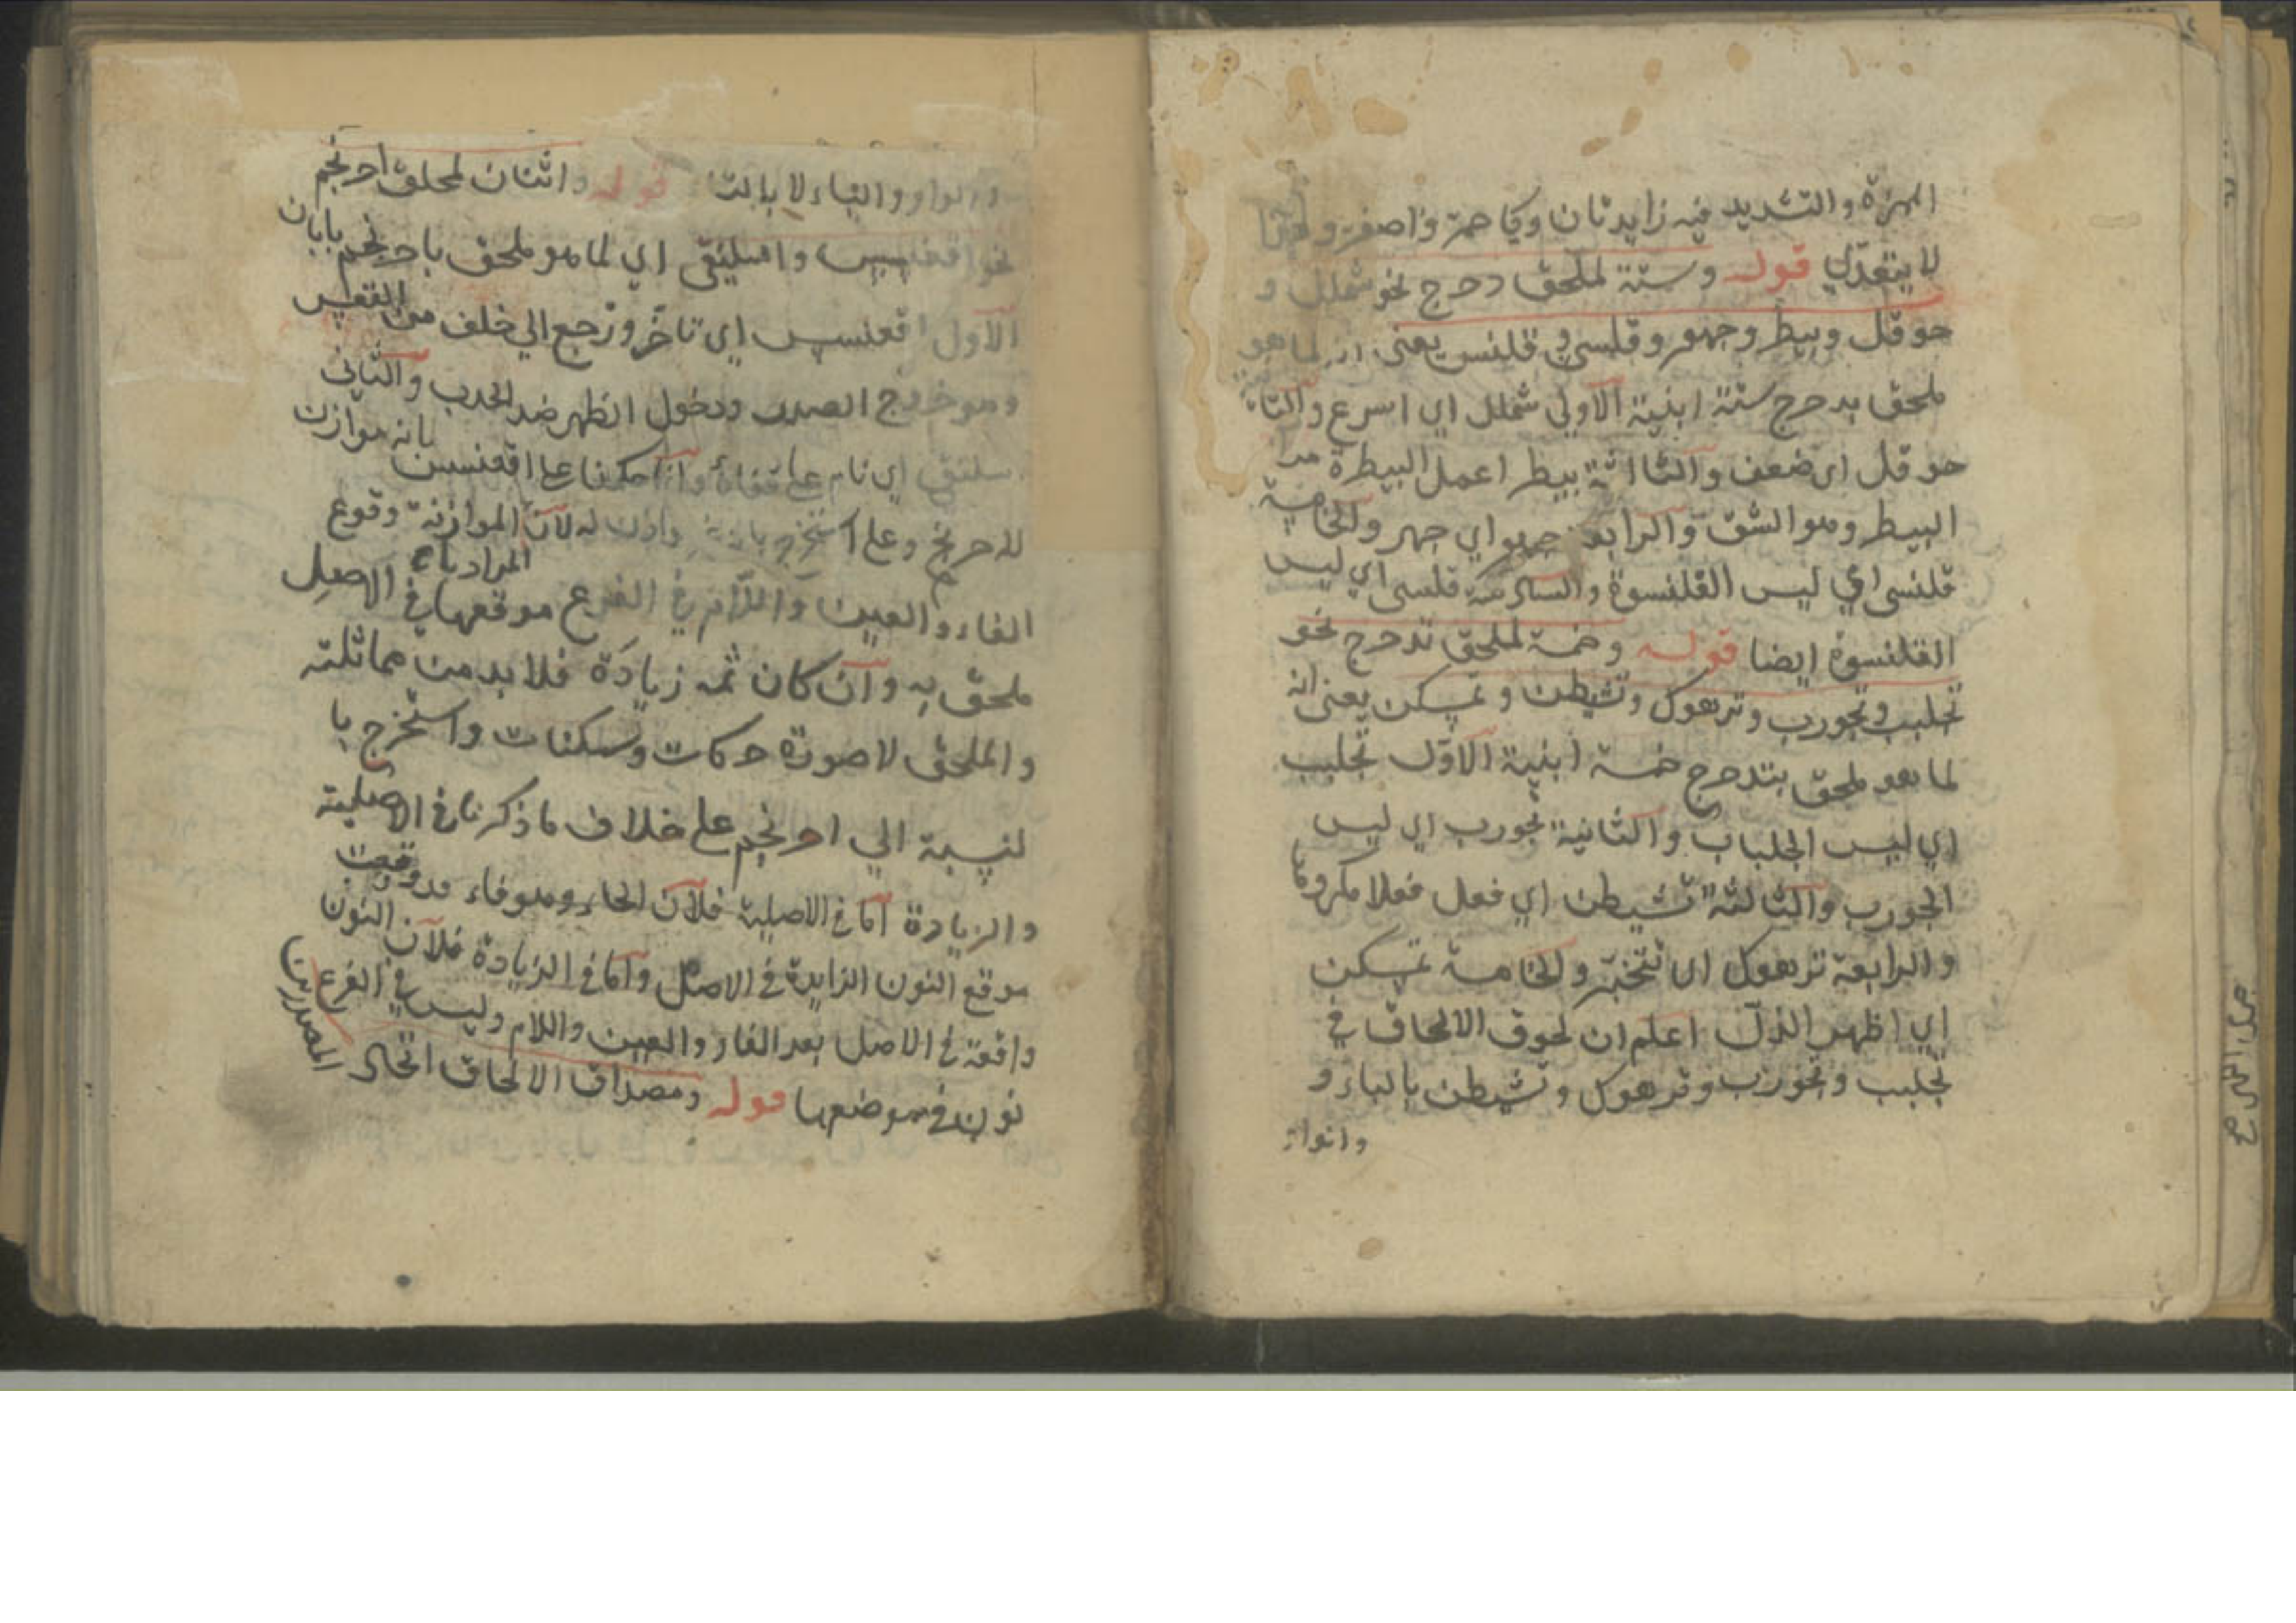 الهمزة والتشديد فيه زايدتان وكاحمرّ واصفرّ و
لا يتعدي قوله وستة لملحق دحرج نحو شملل و
حوقل وبيطر وجهور وقلسي وقلنس يعنى ان لما هو
ملحق بدحرج ستة ابنية الاولي شملل اي اسرع والثا
حوقل اي ضعف والثالثة بيطر اعمل البيطرة من
البيطر وهو الشق والرابعة جهور اي جهر والخامسة
قلنسى اي لبس القلنسوة والسادسة قلسى اي لبس
القلنسوة ايضا قوله وخمسة لملحق تدحرج نحو
تجلبب وتجورب وترهوك وتشيطن وتمسكن يعنى انه
لما هو ملحق بتدحرج خمسة ابنية الاول تجلبب
اي لبس الجلباب والثانية تجورب اي لبس
الجورب والثالثة تشيطن اي فعل فعلا مكروها
والرابعة ترهوك اي تبختر والخامسة تمسكن
اي اظهر الذل اعلم ان لحوق الالحاق في
تجلبب وتجورب وترهوك وتشيطن بالباء و
والواو
والواو والياء لا بالتا قوله واثنان لملحق احرنجم
نحو اقعنسس واسلنقى اي لما هو ملحق باحرنجم بابان
الاول اقعنسس اي تاخر ورجع الي خلف من القعس
وهو خروج الصدر ودخول الظهر ضد الحدب والثانى
سلنقى اي نام على قفاه وانما حكمنا على اقعنسس بانه موازن
لاحرنجم وعلى استخرج بانه له لان الموازنة وقوع
المراد باء
الفاء والعين واللام في الفرع موقعها في الاصل
ملحق به وان كان ثمه زيادة فلا بد من مماثلته
والملحق لا صورة حركات وسكنات واستخرج با
لنسبة الي احرنجم على خلاف ما ذكرنا في الاصلية
والزيادة اما في الاصلية فلان الخاء وهو فاء قد وقعت
موقع النون الزايدة في الاصل واما في الزيادة فلان النون
واقعة في الاصل بعد الفاء والعين واللام وليس في الفرع
نون في موضعها قوله ومصداق الالحاق اتحاد المصدرين